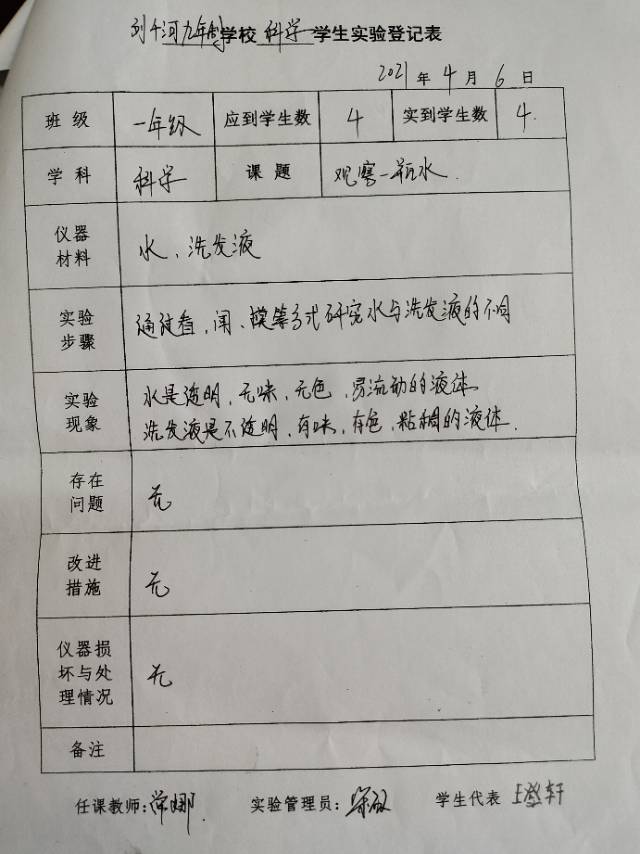 刘千河九年制学校 科学 学生实验登记表
2021 年 4 月 6 日
班级 一年级 应到学生数 4 实到学生数 4.
学科 科学 课题 观察一瓶水.
仪器材料 水、洗发液
实验步骤 通过看,闻、摸等方式研究水与洗发液的不同
实验现象 水是透明,无味,无色,易流动的液体.
洗发液是不透明,有味,有色,粘稠的液体.
存在问题 无
改进措施 无
仪器损坏与处理情况 无
备注
任课教师: 常娜 实验管理员: 学生代表